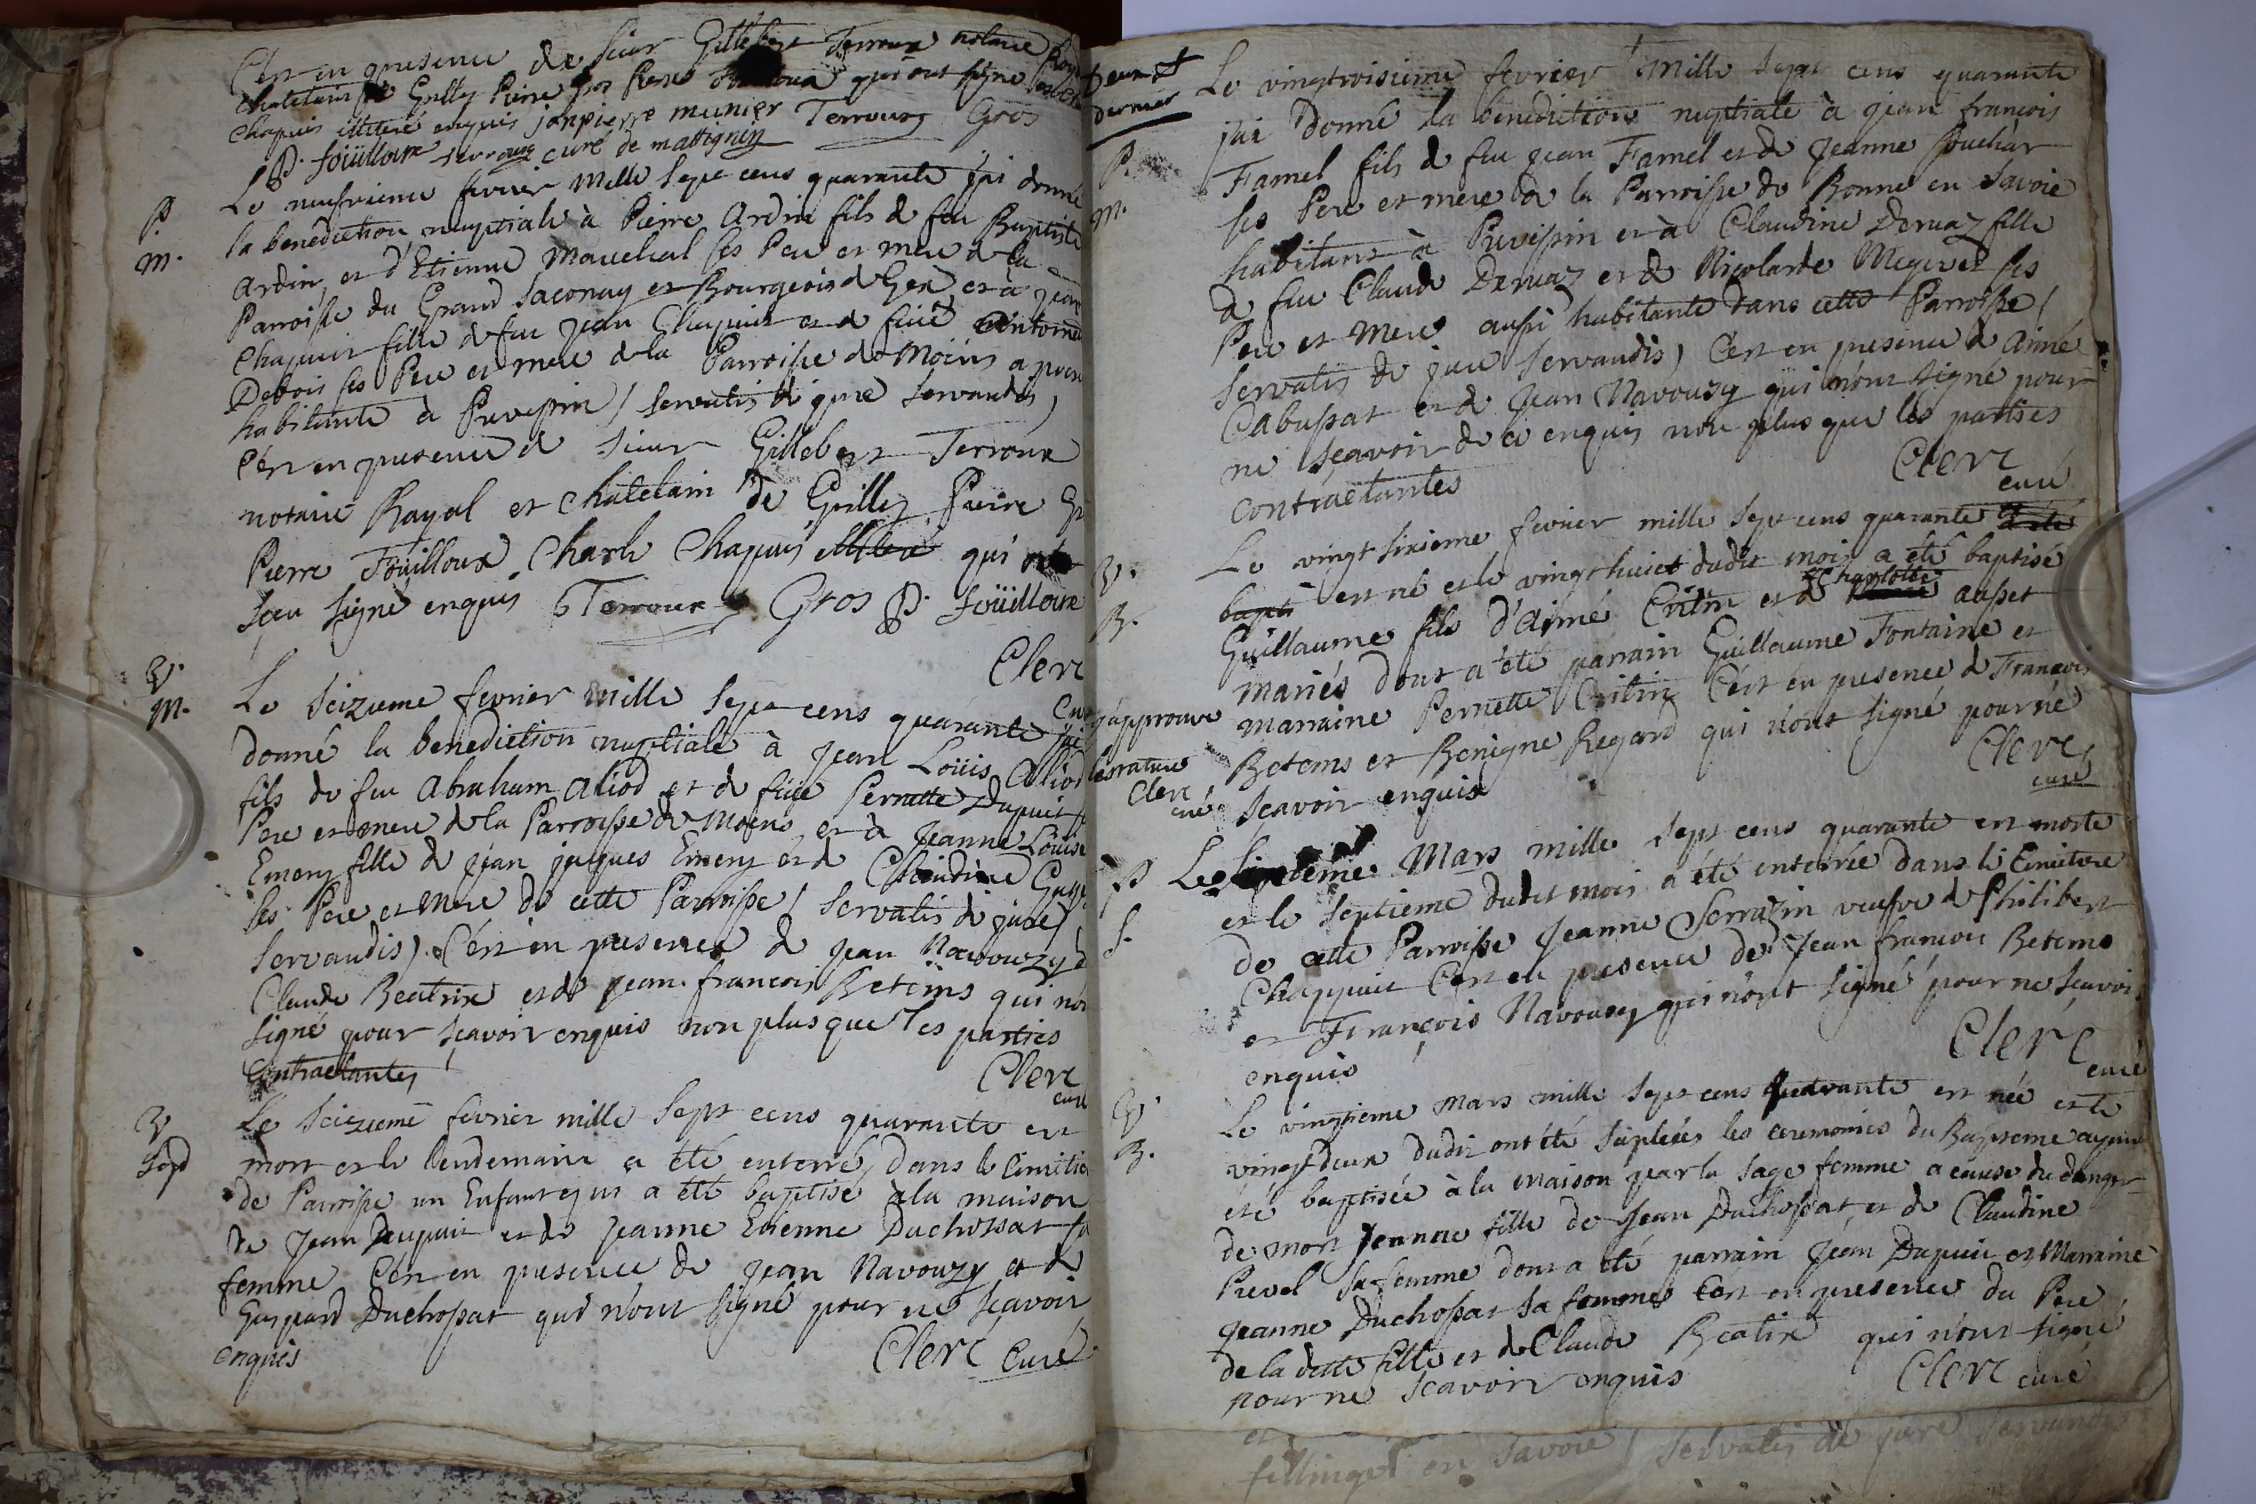 C'est en presence de sieur Gillebert Terroux notaire Royal
chatelain de Grilly Pierre Gros Pierre qui ont signé
Chapuis illiteré enquis janpierre munier Terroux Gros
P. foüilloux curé de mattignin
P. Le neufvieme fevrier mille sept cens quarante j'ai donné
m. la benediction nuptiale à Pierre Ardin fils de feu Baptiste
Ardin, et d'Etienne Marechal ses Pere et mere de la
Parroisse du Grand Saconay et Bourgeois de Gex et à jean
Chapuis fille de feu Jean Chapuis et de füe Antoine
Debois ses Pere et mere de la Parroisse de Moins a present
habitante à Prevessin / servatis de jure servandis,
C'est en presence de sieur Gillebert Terroux
notaire Royal et chatelain de Grilly Pierre
Pierre Foüilloux Charle Chapuis qui
sceu signé enquis Terroux Gros P. foüilloux
Clerc
P. Le seizieme fevrier mille sept cens quarante j'ai
m. donné la benediction nuptiale à Jean Loüis Aliod
fils de feu Abraham Aliod et de füe Pernette Dupuit
Pere et mere de la Parroisse de Moens et à Jeanne Louise
Emery fille de Jean jaques Emery et de Claudine
ses Pere et Mere de cette Parroisse / servatis de jure
servandis). C'est en presence de Jean Navouzy
Claude Beatrix et de jean françois Betems qui n'ont
signé pour sçavoir enquis non plus que les parties
Contractantes
Clerc
curé
P. Le seizieme fevrier mille sept cens quarante est
Sep mort et le lendemain a été enterré, dans le Cimitiere
de Parroisse un Enfant qui a été baptisé à la maison
de Jean Dupuit et de Jeanne Etienne Duchossat sa
femme C'est en presence de Jean Navouzy et de
Gaspard Duchossat qui n'ont signé pour ne sçavoir
enquis Clerc Curé
deux et
dernier
Le vingtroisieme fevrier mille sept cens quarante
jai donné la benediction nuptiale à jean françois
P. Famel fils de feu Jean Famel et de Jeanne Bouchar
m. ses Pere et mere de la Parroisse de Bonne en Savoie
habitant à Prevessin et à Claudine Dervaz fille
de feu Claude Dervaz et de Nicolarde Megevet ses
Pere et Mere aussi habitante dans cette Parroisse /
servatis de jure servandis) C'est en presence de Aimé
Cabussat et de Jean Navouzy qui n'ont signé pour
ne sçavoir de ce enquis non plus que les parties
contractantes
Clerc
curé
P. Le vingt sixieme fevrier mille sept cens quarante
B. est né et le vingt huict dudit mois a été baptisé
Guillaume fils d'Aimé Critin et de Charlotte ausset
mariés dont a été parrain Guillaume Fontaine et
marraine Pernette Critin C'est en presence de François
Betems et Benigne Regard qui n'ont signé pour ne
Scavoir enquis
Clerc
curé
j'approuve
la rature
Clerc
curé
P Le Mars mille sept cens quarante est morte
S. et le septieme dudit mois a été enterrée dans le Cimitiere
de cette Parroisse Jeanne Serrazin veufve de Philibert
Chappuis C'est en presence de Jean françois Betems
et François Navouzy qui n'ont signé pour ne sçavoir
enquis
Clerc
curé
P. Le vingtieme mars mille sept cens quarante est née et le
B. vingt deux dudit ont été suplées les ceremonies du Baptseme ayant
été baptisée à la maison par la Sage femme a cause du danger
de mort Jeanne fille de Jean Duchossat, et de Claudine
Prevel sa femme dont a été parrain Jean Dupuis et Marraine
Jeanne Duchossat sa femme C'est en presence du Pere
de la dette fille et de Claude Beatrix qui n'ont signé
pour ne scavoir enquis
Clerc curé
et
fillinges en Savoie / servatis de jure servandis